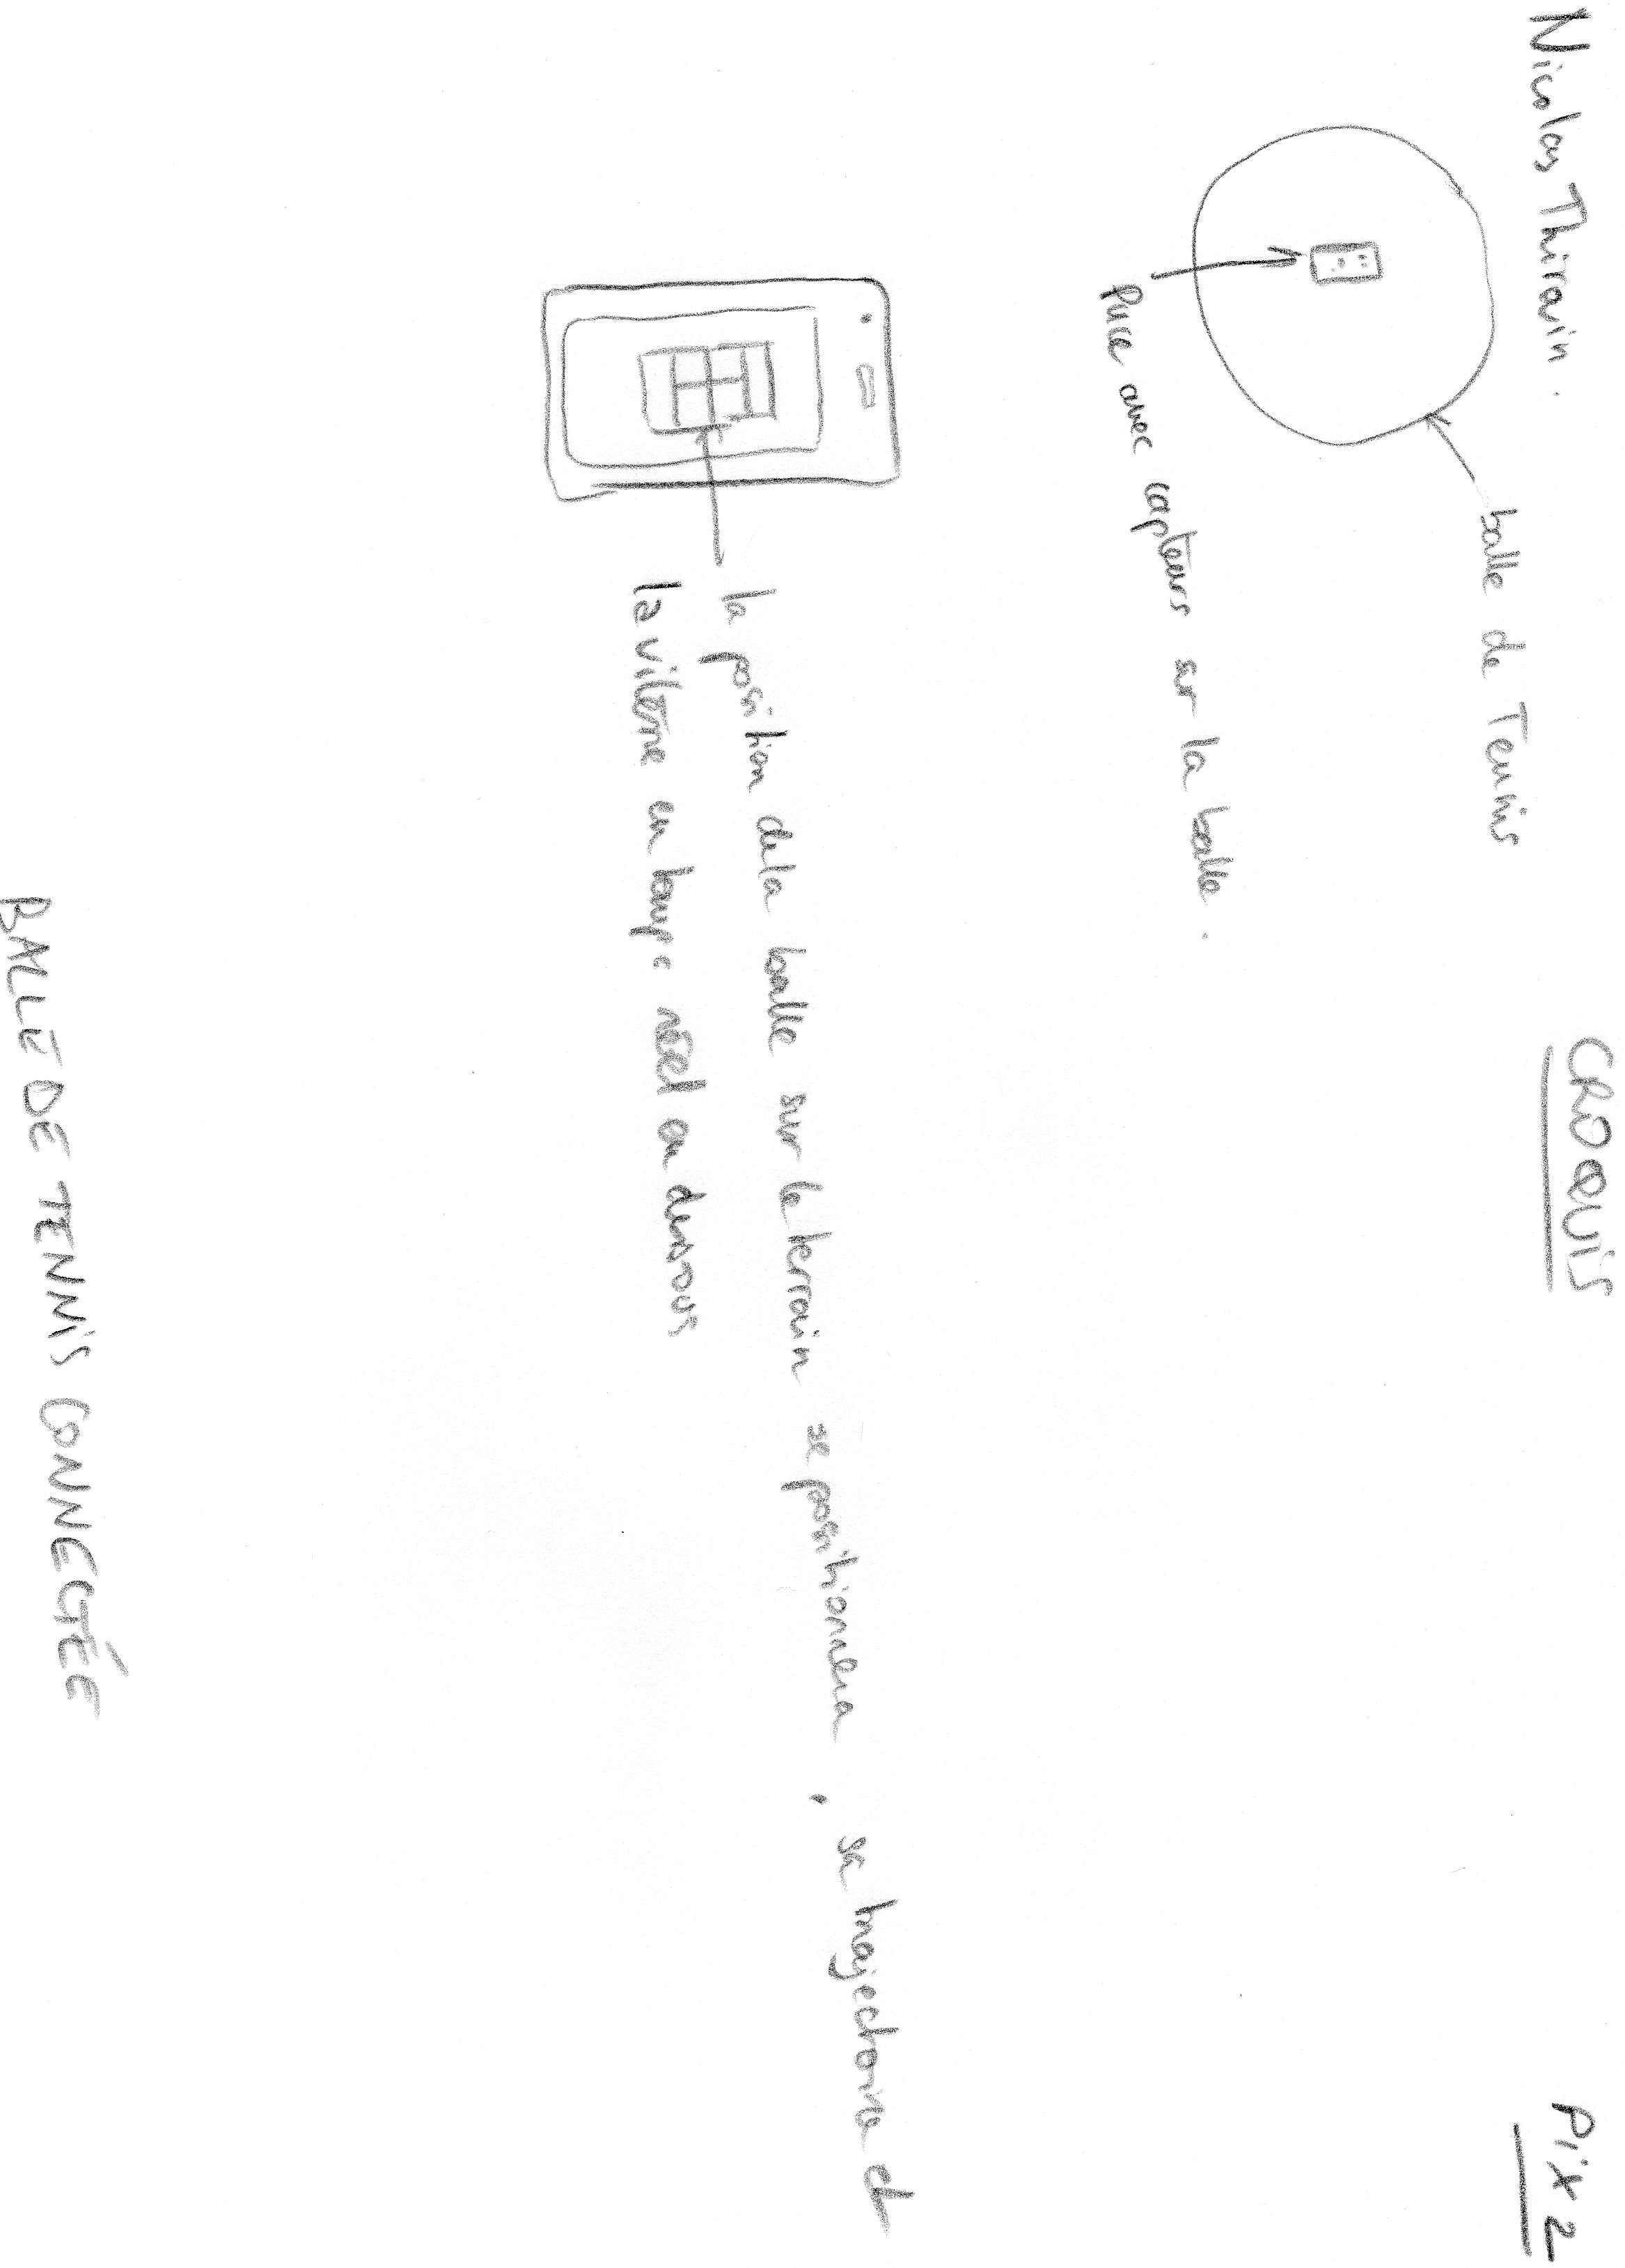 Nicolas Thirain.
CROQUiS
Pix 2
balle de Tennis
Puce avec capteurs sur la balle.
la position de la balle sur le terrain se positionnera . sa trajectoire et
la vitesse en temps réel en dessous
BALLE DE TENNiS CONNECTÉE